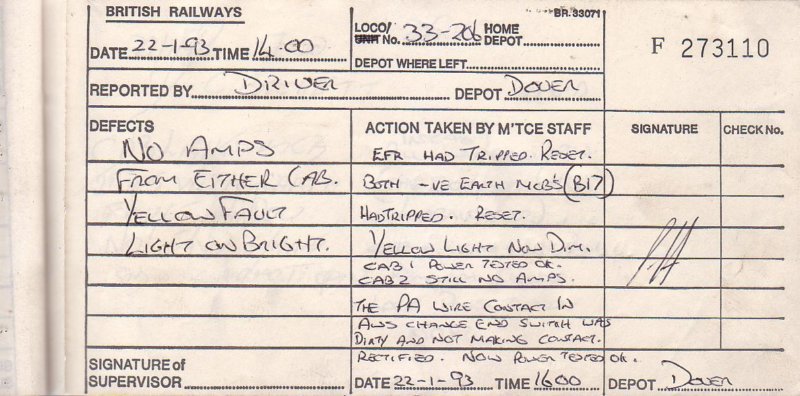 BRITISH RAILWAYS
BR.33071
LOCO/UNIT No. 33-206 HOME DEPOT
F 273110
DATE 22-1-93 TIME 14.00
DEPOT WHERE LEFT
REPORTED BY DRIVER DEPOT DOVER
DEFECTS ACTION TAKEN BY M'TCE STAFF SIGNATURE CHECK No.
NO AMPS EFR HAD TRIPPED. RESET.
FROM EITHER CAB. BOTH -VE EARTH MCB'S (B17)
YELLOW FAULT HAD TRIPPED. RESET.
LIGHT ON BRIGHT. YELLOW LIGHT NOW DIM.
CAB 1 POWER TESTED OK.
CAB 2 STILL NO AMPS.
THE PA WIRE CONTACT IN
AWS CHANGE END SWITCH WAS
DIRTY AND NOT MAKING CONTACT.
RECTIFIED. NOW POWER TESTED OK.
SIGNATURE of SUPERVISOR
DATE 22-1-93 TIME 1600 DEPOT DOVER